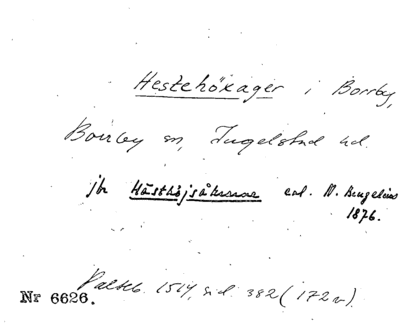 Hestehöxager i Borrby,
Borrby sn, Ingelstad hd.
jfr Hästhöjsåkrarne enl. W. Bengelin
1876.
Palteb. 1514, sid. 382 (172 v).
Nr 6626.